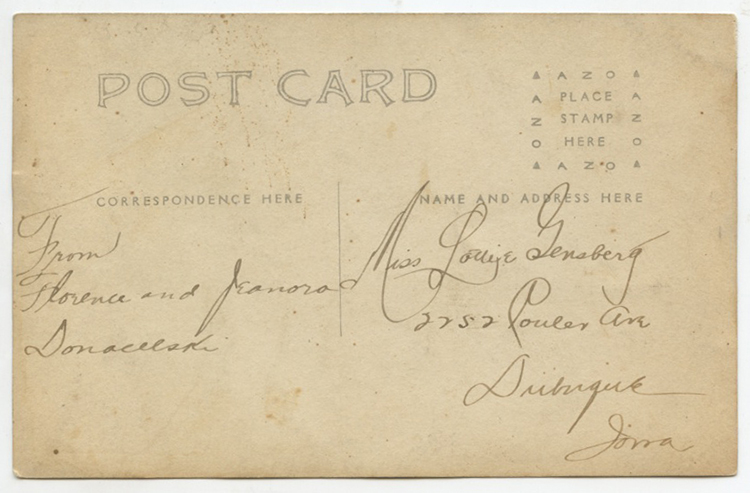 POST CARD
▲ AZO ▲
A PLACE A
Z STAMP Z
O HERE O
▲ AZO ▲
CORRESPONDENCE HERE
NAME AND ADDRESS HERE
From
Florence and Jeanora
Donacelski
Miss Louise Gensberg
2252 Ave
Dubuque
Iowa